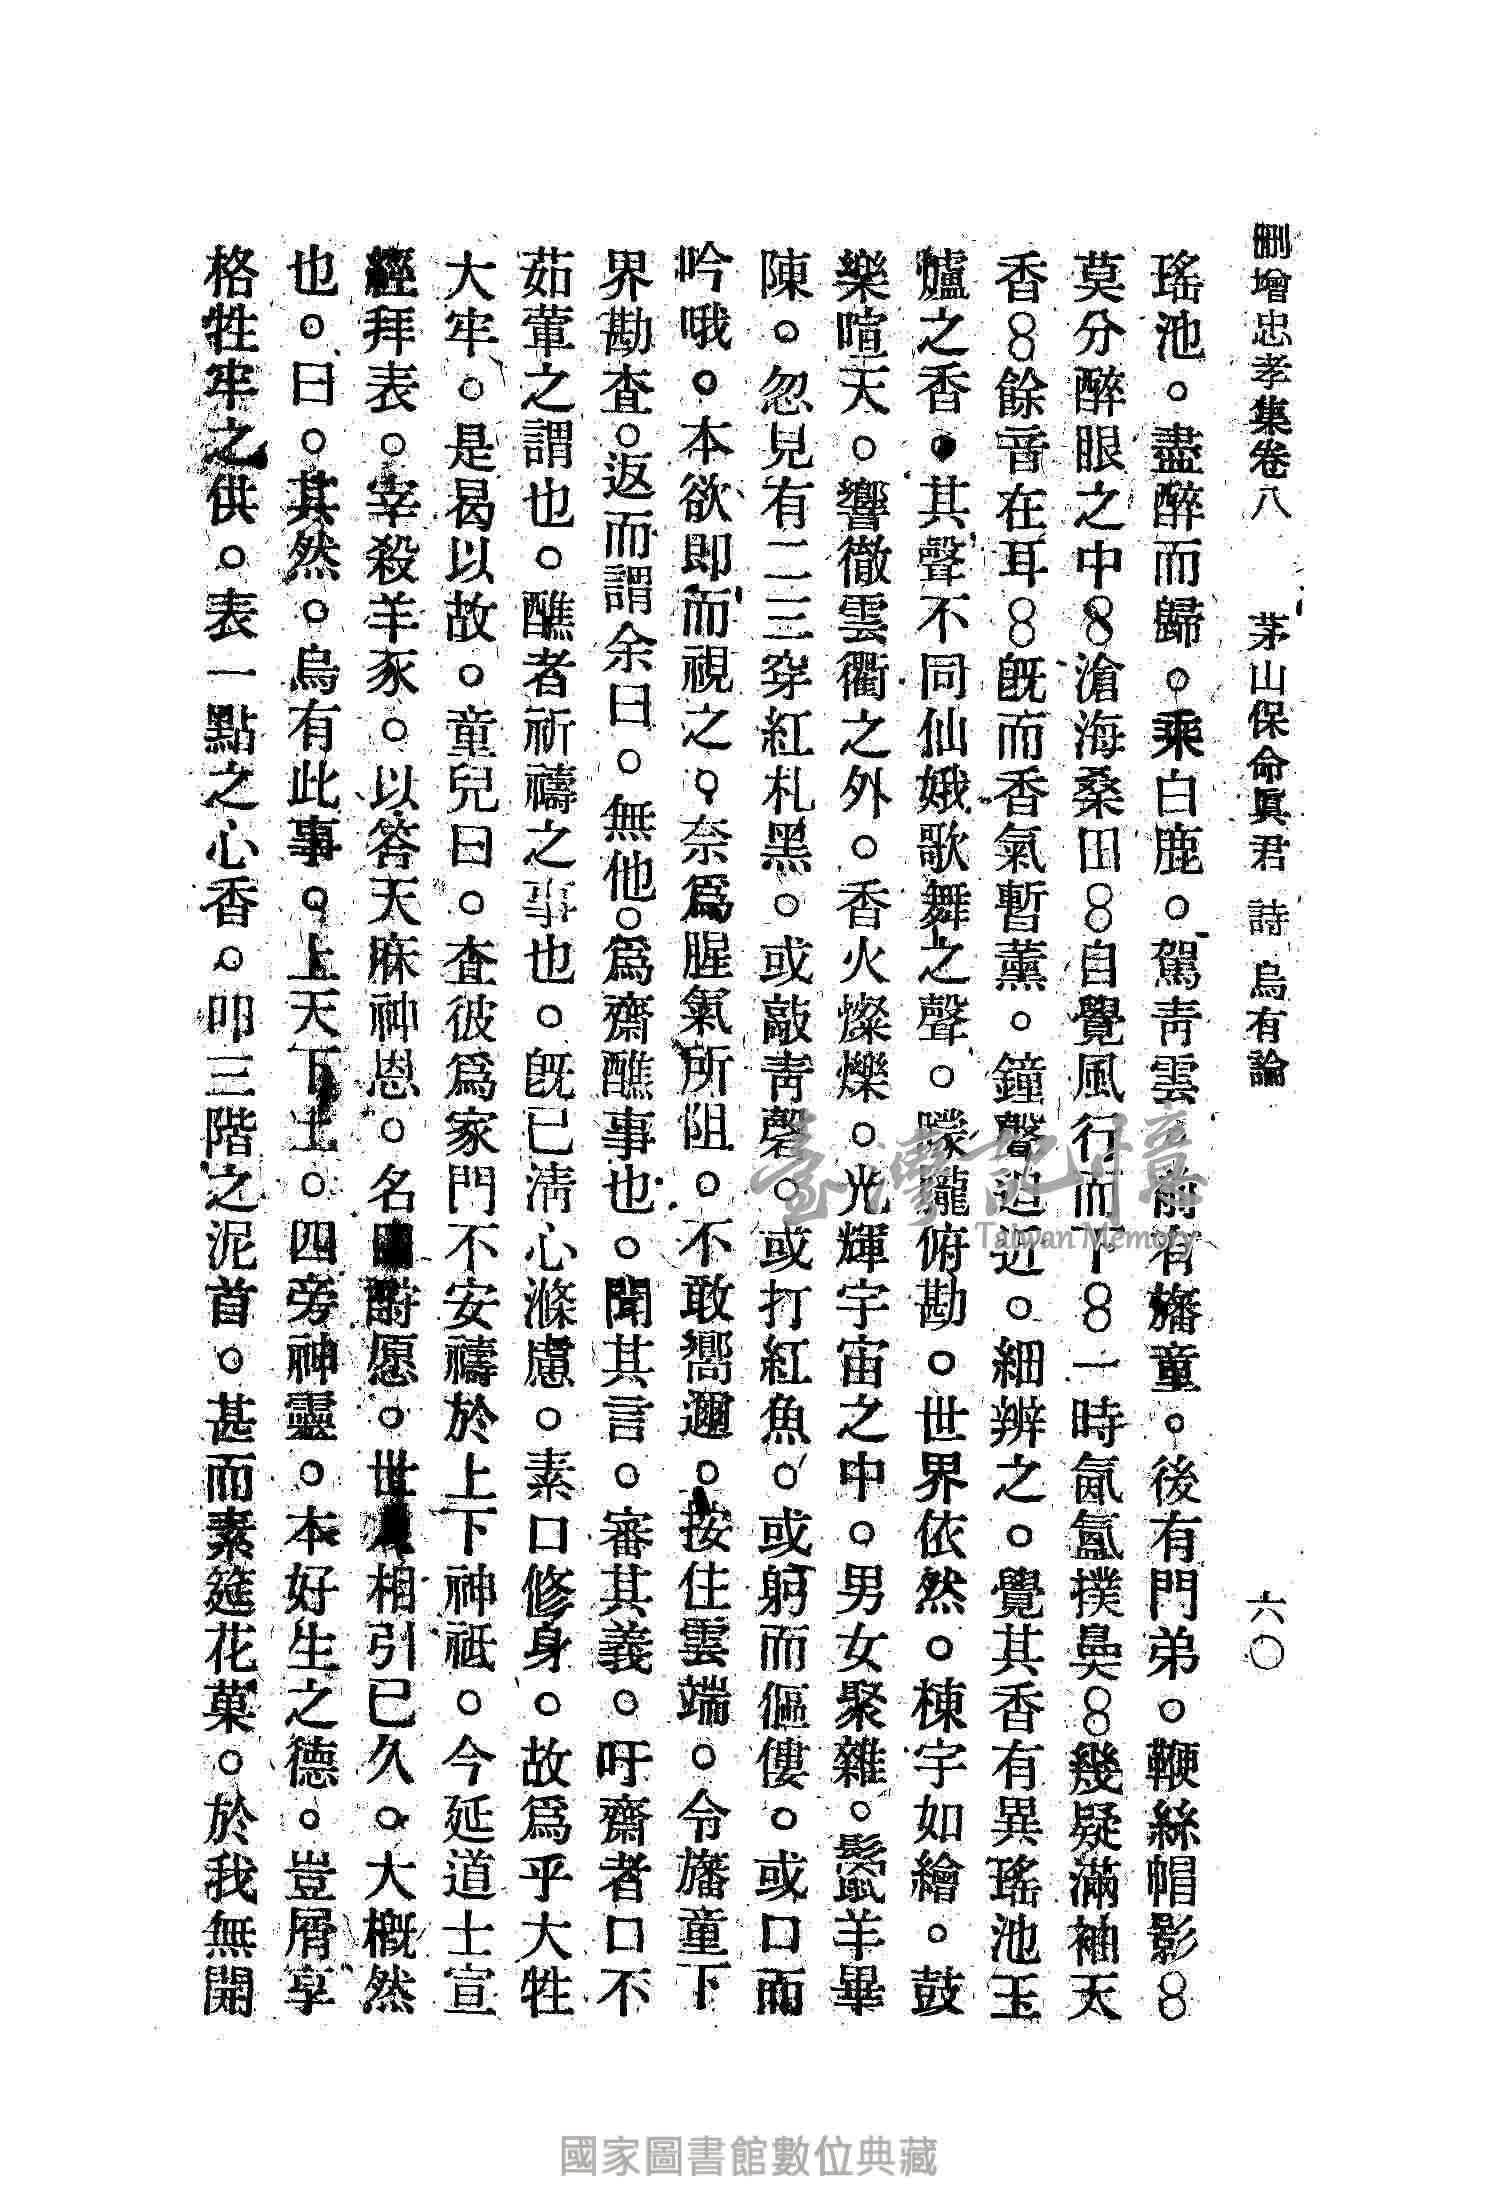 刪增忠孝集卷八　茅山保命眞君　詩　烏有論　六〇
瑤池。盡醉而歸。乘白鹿。駕靑雲。前有旛童。後有門弟。鞭絲帽影○○
莫分醉眼之中○○滄海桑田○○自覺風行而下○○一時氤氳撲鼻○○幾疑滿袖天
香○○餘音在耳○○旣而香氣暫薰。鐘聲迫近。細辨之。覺其香有異瑤池玉
爐之香。其聲不同仙娥歌舞之聲。矇矓俯勘。世界依然。棟宇如繪。鼓
樂喧天。響徹雲衢之外。香火燦爍。光輝宇宙之中。男女聚雜。鬣羊畢
陳。忽見有二三穿紅札黑。或敲靑磬。或打紅魚。或躬而傴僂。或口而
吟哦。本欲卽而視之。奈爲腥氣所阻。不敢嚮邇。按住雲端。令旛童下
界勘查。返而謂余曰。無他。爲齋醮事也。聞其言。審其義。吁齋者口不
茹葷之謂也。醮者祈禱之事也。旣已淸心滌慮。素口修身。故爲乎大牲
大牢。是曷以故。童兒曰。查彼爲家門不安禱於上下神祗。今延道士宣
經拜表。宰殺羊豕。以答天庥神恩。名曰酹愿。世人相引已久。大槪然
也。曰。其然。烏有此事。上天下土。四旁神靈。本好生之德。豈屑享
格牲牢之供。表一點之心香。叩三階之泥首。甚而素筵花菓。於我無開
臺灣記憶
Taiwan Memory
國家圖書館數位典藏